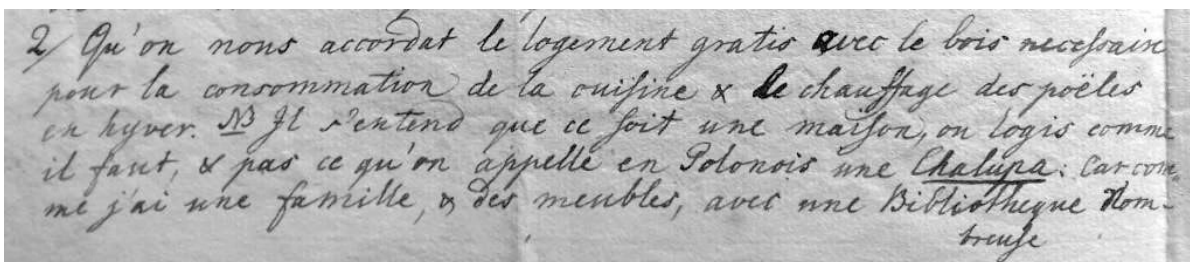 2/ Qu'on nous accordat le logement gratis avec le bois necessaire
pour la consommation de la cuisine & le chauffage des poëles
en hyver. NB Il s'entend que ce soit une maison, ou logis comme
il faut, & pas ce qu'on appelle en Polonois une Chalupa: Car com-
me j'ai une famille, & des meubles, avec une Bibliotheque Nom-
breuse